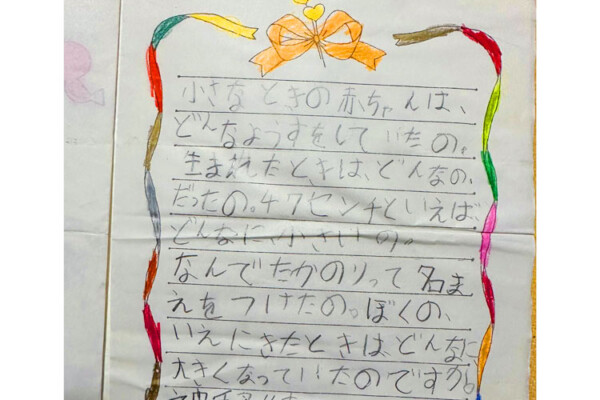 小さなときの赤ちゃんは、
どんなようすをしていたの。
生まれたときは、どんなの、
だったの。47センチといえば、
どんなに、小さいの。
なんでたかのりって名ま
えをつけたの。ぼくの、
いえにきたときは、どんなに、
大きくなっていたのですか。